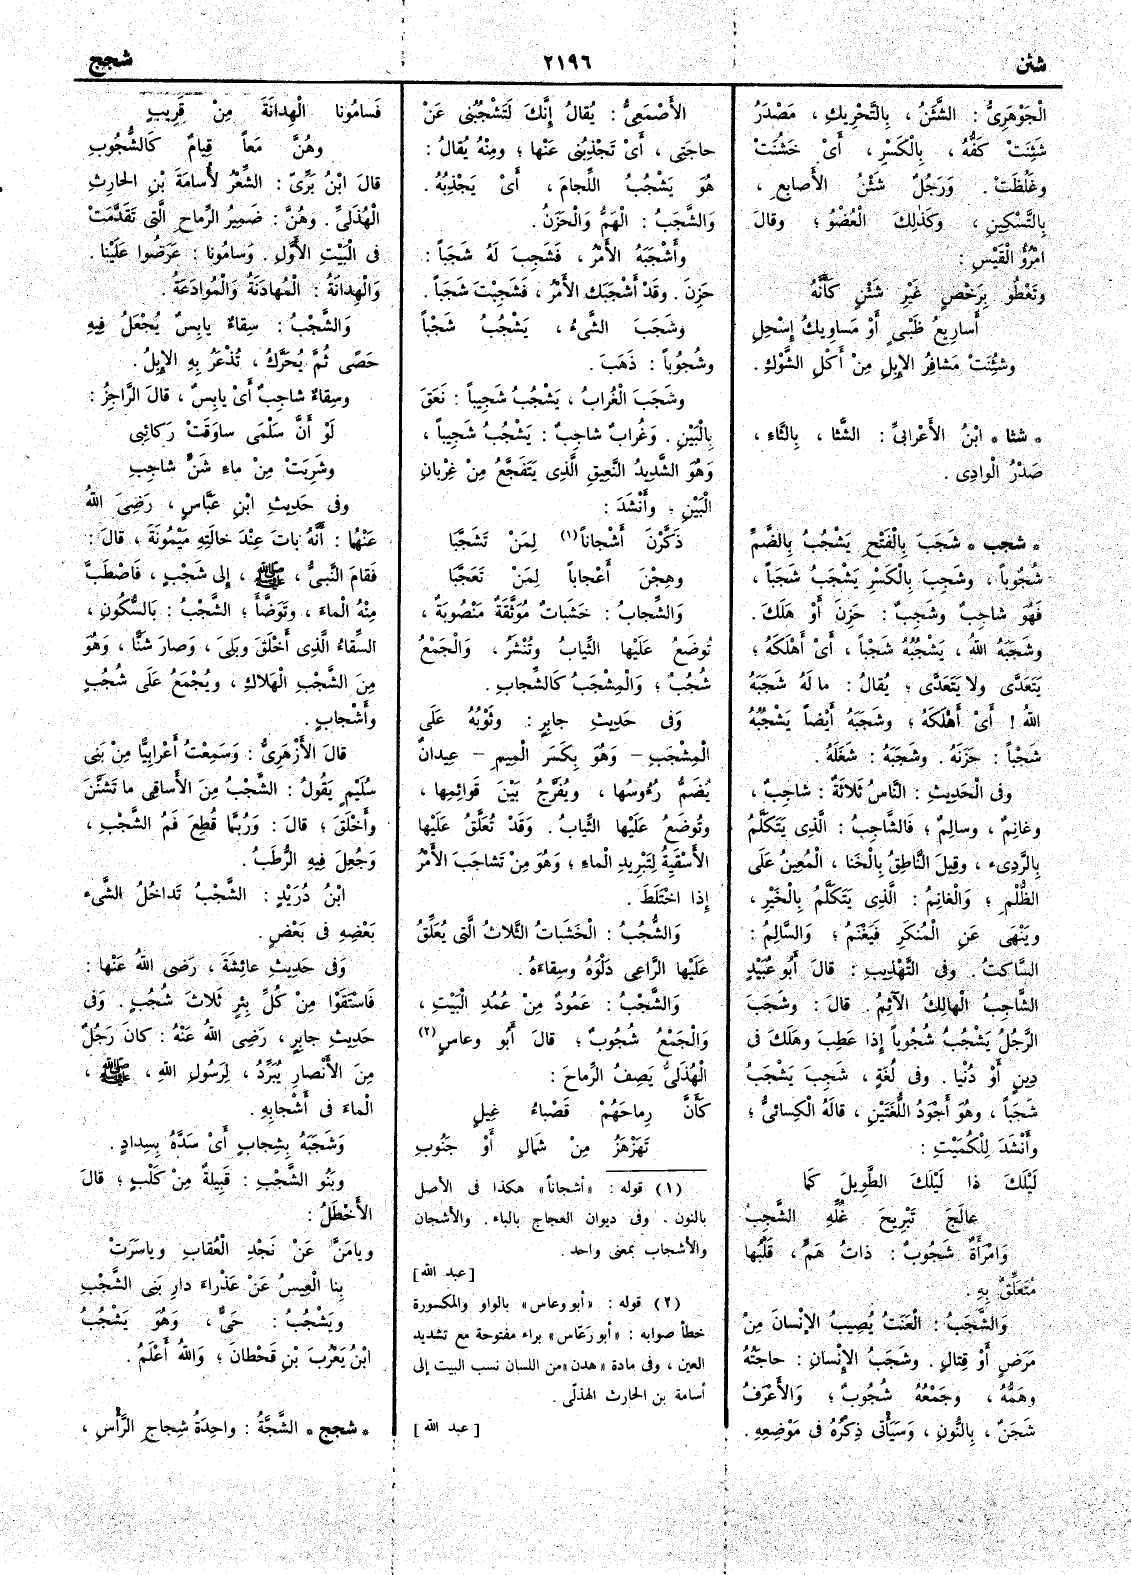 شثن
٢١٩٦
شجج
الْجَوْهَرِىُّ : الشَّثَنُ ، بِالتَّحْرِيكِ ، مَصْدَرُ
شَثِنَتْ كَفُّهُ ، بِالْكَسْرِ ، أَىْ خَشُنَتْ
وغَلُظَتْ . وَرَجُلٌ شَثْنُ الأَصابِعِ ،
بِالتَّسْكِينِ ، وَكَذٰلِكَ الْعُضْوُ ؛ وقالَ
امْرُؤُ الْقَيْسِ :
وتَعْطُو بِرَخْصٍ غَيْرِ شَثْنٍ كَأَنَّهُ
أَسارِيعُ ظَبْىٍ أَوْ مَساوِيكُ إِسْحِلِ
وشَثِنَتْ مَشافِرُ الإِبِلِ مِنْ أَكْلِ الشَّوْكِ .
* شثا * ابْنُ الأَعْرابِىِّ : الشَّثا ، بِالثَّاءِ ،
صَدْرُ الْوادِى .
* شجب * شَجَبَ بِالْفَتْحِ يَشْجُبُ بِالضَّمِّ
شُجُوباً ، وشَجِبَ بِالْكَسْرِ يَشْجَبُ شَجَباً ،
فَهُوَ شاجِبٌ وشَجِبٌ : حَزِنَ أَوْ هَلَكَ .
وشَجَبَهُ اللهُ ، يَشْجُبُهُ شَجْباً ، أَىْ أَهْلَكَهُ ؛
يَتَعَدَّى ولا يَتَعَدَّى ؛ يُقالُ : ما لَهُ شَجَبَهُ
اللهُ ! أَىْ أَهْلَكَهُ ؛ وشَجَبَهُ أَيْضاً يَشْجُبُهُ
شَجْباً : حَزَنَهُ . وشَجَبَهُ : شَغَلَهُ .
وفى الْحَدِيثِ : النَّاسُ ثَلاثَةٌ : شاجِبٌ ،
وغانِمٌ ، وسالِمٌ ؛ فَالشَّاجِبُ : الَّذِى يَتَكَلَّمُ
بِالرَّدِىءِ ، وقِيلَ النَّاطِقُ بِالْخَنا ، الْمُعِينُ عَلَى
الظُّلْمِ ؛ وَالْغانِمُ : الَّذِى يَتَكَلَّمُ بِالْخَيْرِ ،
ويَنْهَى عَنِ الْمُنكَرِ فَيَغْنَمُ ؛ وَالسَّالِمُ :
السَّاكتُ . وفى التَّهْذِيبِ : قالَ أَبُو عُبَيْدٍ
الشَّاجِبُ الْهالِكُ الآثِمُ . قالَ : وشَجَبَ
الرَّجُلُ يَشْجُبُ شُجُوباً إِذا عَطِبَ وهَلَكَ فى
دِينٍ أَوْ دُنْيا . وفى لُغَةٍ ، شَجِبَ يَشْجَبُ
شَجَباً ، وهُوَ أَجْوَدُ اللُّغَتَيْنِ ، قالَهُ الْكِسائىُّ ؛
وأَنْشَدَ لِلْكُمَيْتِ :
لَيْلَكَ ذا لَيْلَكَ الطَّوِيلَ كَما
عالَجَ تَبْرِيحَ غُلِّهِ الشَّجِبُ
وَامْرَأَةٌ شَجُوبٌ : ذاتُ هَمٍّ ، قَلْبُها
مُتَعَلِّقٌ بِهِ .
وَالشَّجَبُ : الْعَنَتُ يُصِيبُ الإِنْسانَ مِنْ
مَرَضٍ أَوْ قِتالٍ . وشَجَبُ الإِنْسانِ : حاجَتُهُ
وهَمُّهُ ، وجَمْعُهُ شُجُوبٌ ؛ وَالأَعْرَفُ
شَجَنٌ ، بِالنُّونِ ، وَسَيَأْتى ذِكْرُهُ فى مَوْضِعِهِ .
الأَصْمَعِىُّ : يُقالُ إِنَّكَ لَتَشْجُبُنِى عَنْ
حاجَتِى ، أَىْ تَجْذِبُنى عَنْها ؛ ومِنْهُ يُقالُ :
هُوَ يَشْجُبُ اللِّجامَ ، أَىْ يَجْذِبُهُ .
وَالشَّجَبُ : الْهَمُّ وَالْحَزَنُ .
وأَشْجَبَهُ الأَمْرُ ، فَشَجِبَ لَهُ شَجَباً :
حَزِنَ . وقَدْ أَشْجَبَك الأَمْرُ ، فَشَجِبْتَ شَجَباً .
وشَجَبَ الشَّىءُ ، يَشْجُبُ شَجْباً
وشُجُوباً : ذَهَبَ .
وشَجَبَ الْغُرابُ ، يَشْجُبُ شَجِيباً : نَعَقَ
بِالْبَيْنِ . وَغُرابٌ شاجِبٌ : يَشْجُبُ شَجِيباً ،
وَهُوَ الشَّدِيدُ النَّعِيقِ الَّذِى يَتَفَجَّعُ مِنْ غِرْبانِ
الْبَيْنِ ؛ وأَنْشَدَ :
ذَكَّرْنَ أَشْجاناً (١) لِمَنْ تَشَجَّبَا
وهِجْنَ أَعْجاباً لِمَنْ تَعَجَّبَا
وَالشِّجابُ : خَشَباتٌ مُوَثَّقَةٌ مَنْصُوبَةٌ ،
تُوضَعُ عَلَيْها الثِّيابُ وتُنْشَرُ ، وَالْجَمْعُ
شُجُبٌ ؛ وَالْمِشْجَبُ كَالشِّجابِ .
وَفى حَدِيثِ جابِرٍ : وثَوْبُهُ عَلَى
الْمِشْجَبِ - وَهُوَ بِكَسْرِ الْمِيمِ - عِيدانٌ
يُضَمُّ رُءُوسُها ، ويُفَرَّجُ بَيْنَ قَوائِمِها ،
وتُوضَعُ عَلَيْها الثِّيابُ . وَقَدْ تُعَلَّقُ عَلَيْها
الأَسْقِيَةُ لِتَبْرِيدِ الْماءِ ؛ وَهُوَ مِنْ تَشاجَبَ الأَمْرُ
إِذا اخْتَلَطَ .
وَالشُّجُبُ : الْخَشَباتُ الثَّلاثُ الَّتِى يُعَلِّقُ
عَلَيْها الرَّاعِى دَلْوَهُ وسِقاءَهُ .
وَالشَّجْبُ : عَمُودٌ مِنْ عُمُدِ الْبَيْتِ ،
وَالْجَمْعُ شُجُوبٌ ؛ قالَ أَبُو وعاسٍ (٢)
الْهُذَلِىُّ يَصِفُ الرِّماحَ :
كَأَنَّ رِماحَهُمْ قَصْباءُ غِيلٍ
تَهَزْهَزُ مِنْ شَمالٍ أَوْ جَنُوبِ
(١) قوله : «أشجاناً» هكذا فى الأصل
بالنون . وفى ديوان العجاج بالباء . والأشجان
والأشجاب بمعنى واحد .
[ عبد الله ]
(٢) قوله : «أبو وعاس» بالواو والمكسورة
خطأ صوابه : «أبو رَعّاس» براء مفتوحة مع تشديد
العين ، وفى مادة «هدن» من اللسان نسب البيت إلى
أسامة بن الحارث الهذلّى .
[ عبد الله ]
فَسامُونا الْهِدانَةَ مِنْ قَرِيبٍ
وهُنَّ مَعاً قِيامٌ كَالشُّجُوبِ
قالَ ابْنُ بَرِّىّ : الشِّعْرُ لأُسامَةَ بْنِ الحارِثِ
الْهُذَلِىِّ . وهُنَّ : ضَمِيرُ الرِّماحِ الَّتِى تَقَدَّمَتْ
فِى الْبَيْتِ الأَوَّلِ . وَسامُونا : عَرَضُوا عَلَيْنا .
وَالْهِدانَةُ : الْمُهادَنَةُ وَالْمُوادَعَةُ .
وَالشَّجْبُ : سِقاءٌ يابِسٌ يُجْعَلُ فِيهِ
حَصًى ثُمَّ يُحَرَّكُ ، تُذْعَرُ بِهِ الإِبِلُ .
وسِقاءٌ شاجِبٌ أَىْ يابِسٌ ، قالَ الرَّاجِزُ :
لَوْ أَنَّ سَلْمَى ساوَقَتْ رَكائِبِى
وشَرِبَتْ مِنْ ماءِ شَنٍّ شاجِبِ
وفى حَدِيثِ ابْنِ عَبَّاسٍ ، رَضِىَ اللهُ
عَنْهُما : أَنَّهُ باتَ عِنْدَ خالَتِهِ مَيْمُونَةَ ، قالَ :
فَقامَ النَّبِىُّ ، ﷺ ، إِلى شَجْبٍ ، فَاصْطَبَّ
مِنْهُ الْماءَ ، وتَوَضَّأَ ؛ الشَّجْبُ : بَالسُّكُونِ ،
السِّقاءُ الَّذِى أَخْلَقَ وبَلِىَ ، وَصارَ شَنًّا ، وَهُوَ
مِنَ الشَّجْبِ الْهَلاكِ ، ويُجْمَعُ عَلَى شُجُبٍ
وأَشْجابٍ .
قالَ الأَزْهَرِىُّ : وَسَمِعْتُ أَعْرابِيًّا مِنْ بَنِى
سُلَيْمٍ يَقُولُ : الشَّجْبُ مِنَ الأَساقِى ما تَشَنَّنَ
وأَخْلَقَ ؛ قالَ : وَرُبَّما قُطِعَ فَمُ الشَّجْبِ ،
وَجُعِلَ فِيهِ الرُّطَبُ .
ابْنُ دُرَيْدٍ : الشَّجْبُ تَداخُلُ الشَّىء
بَعْضِهِ فى بَعْضٍ .
وَفى حَدِيثِ عائِشَةَ ، رَضِىَ اللهُ عَنْها :
فَاسْتَقَوْا مِنْ كُلِّ بِئرٍ ثَلاثَ شُجُبٍ . وَفى
حَدِيثِ جابِرٍ ، رَضِىَ اللهُ عَنْهُ : كانَ رَجُلٌ
مِنَ الأَنْصارِ يُبَرِّدُ ، لِرَسُولِ اللهِ ، ﷺ ،
الْماءَ فى أَشْجابِهِ .
وَشَجَبَهُ بِشِجابٍ أَىْ سَدَّهُ بِسِدادٍ .
وبَنُو الشَّجْبِ : قَبِيلَةٌ مِنْ كَلْبٍ ؛ قالَ
الأَخْطَلُ :
ويامَنَّ عَنْ نَجْدِ الْعُقابِ وياسَرَتْ
بِنا الْعِيسُ عَنْ عَذْراءَ دارِ بَنِى الشَّجْبِ
ويَشْجُبُ : حَىٌّ ، وَهُوَ يَشْجُبُ
ابْنُ يَعْرُبَ بْنِ قَحْطانَ ؛ وَاللهُ أَعْلَمُ .
* شجج * الشَّجَّةُ : واحِدَةُ شِجاجِ الرَّأْسِ ،